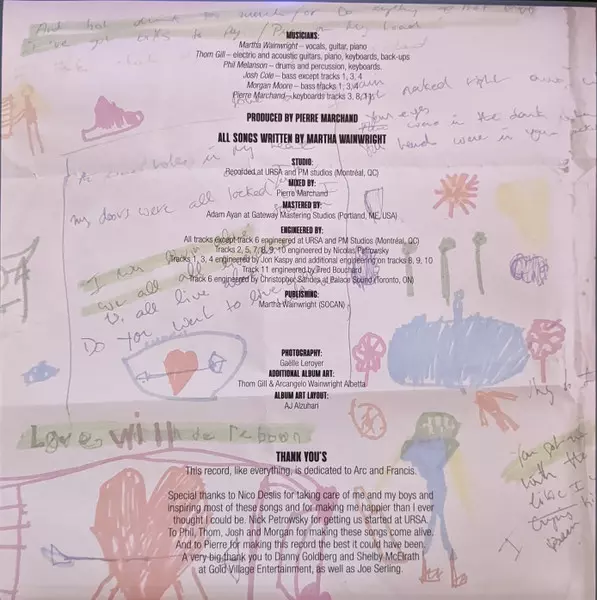 And not drink too much / or Do anything
I've got
MUSICIANS:
Martha Wainwright – vocals, guitar, piano
Thom Gill – electric and acoustic guitars, piano, keyboards, back-ups
Phil Melanson – drums and percussion, keyboards.
Josh Cole – bass except tracks 1, 3, 4
Morgan Moore – bass tracks 1, 3, 4
Pierre Marchand – keyboards tracks 3, 8, 11
naked
your eyes
were in the dark
head were in your
PRODUCED BY PIERRE MARCHAND
ALL SONGS WRITTEN BY MARTHA WAINWRIGHT
holes in my head
my doors were all locked
STUDIO:
Recorded at URSA and PM studios (Montréal, QC)
MIXED BY:
Pierre Marchand
MASTERED BY:
Adam Ayan at Gateway Mastering Studios (Portland, ME, USA)
ENGINEERED BY:
All tracks except track 6 engineered at URSA and PM Studios (Montréal, QC)
Tracks 2, 5, 7, 8, 9, 10 engineered by Nicolas Petrowsky
Tracks 1, 3, 4 engineered by Jon Kaspy and additional engineering on tracks 8, 9, 10
Track 11 engineered by Fred Bouchard
Track 6 engineered by Christopher Sandes at Palace Sound (Toronto, ON)
I was
we all
all live
Do you want to live
PUBLISHING:
Martha Wainwright (SOCAN)
PHOTOGRAPHY:
Gaëlle Leroyer
ADDITIONAL ALBUM ART:
Thom Gill & Arcangelo Wainwright Albetta
ALBUM ART LAYOUT:
AJ Alzuhari
Love will be reborn
You
with the
like I
I
THANK YOU'S
This record, like everything, is dedicated to Arc and Francis.
Special thanks to Nico Deslis for taking care of me and my boys and
inspiring most of these songs and for making me happier than I ever
thought I could be. Nick Petrowsky for getting us started at URSA.
To Phil, Thom, Josh and Morgan for making these songs come alive.
And to Pierre for making this record the best it could have been.
A very big thank you to Danny Goldberg and Shelby McElrath
at Gold Village Entertainment, as well as Joe Serling.